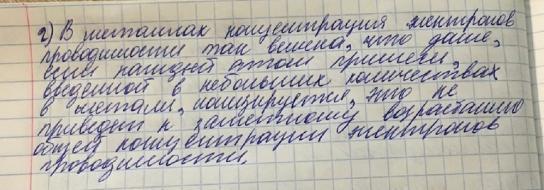 2) В металлах концентрация электронов
проводимости так велика, что даже,
если каждый атом примеси,
введенной в небольших количествах
в металл, ионизируется, это не
приведет к заметному возрастанию
общей концентрации электронов
проводимости